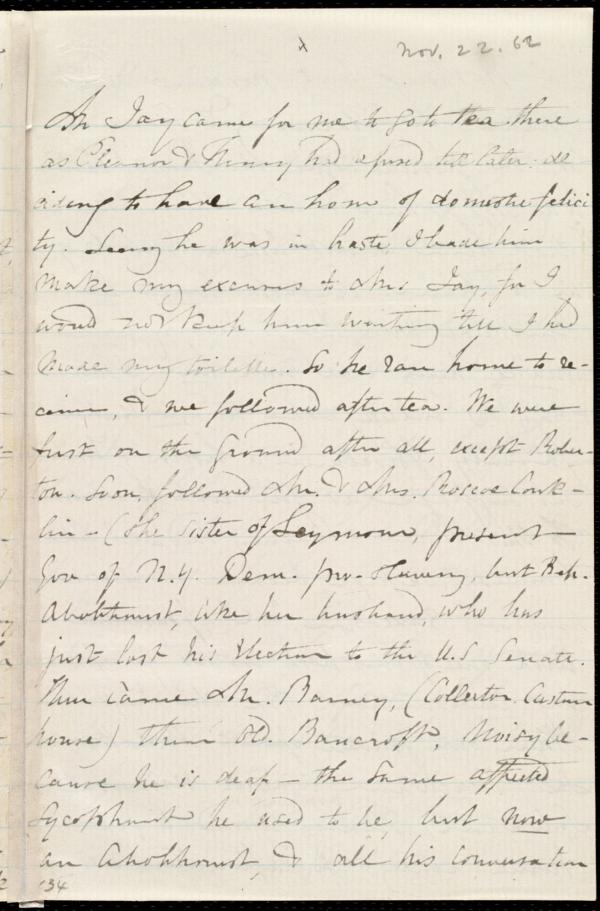 Nov. 22. 62
Mr Jay came for me to go to tea there
as Eleanor & Henry had refused till later, de
ciding to have an hour of domestic felici
ty. Seeing he was in haste, I bade him
make my excuses to Mrs Jay, for I
would not keep him waiting till I had
made my toilette. So he ran home to re-
ceive, & we followed after tea. We were
first on the ground after all, except Rober-
ton. Soon, followed Mr. & Mrs. Roscoe Conk-
lin - (the sister of Seymour, present
Gov of N.Y. Dem. pro-slavery, but Rep.
Abolitionist, like her husband, who has
just lost his election to the U.S Senate.
Then came Mr. Barney, (Collector Custom
house) then old Bancroft, noisy be-
cause he is deaf - the same affected
sycophant he used to be, but now
an Abolitionist, & all his conversation
134